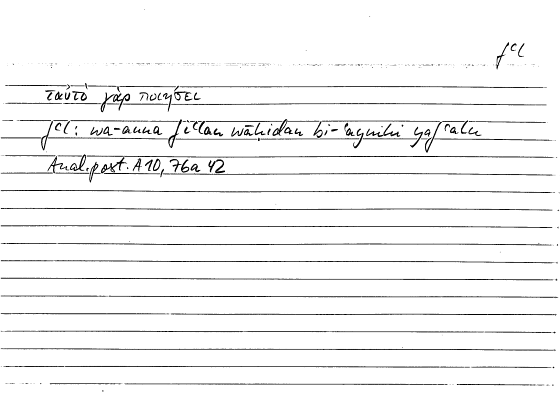 fʿl
ταὐτὸ γὰρ ποιήσει
fʿl: wa-anna fiʿlan wāḥidan bi-ʿaynihi yafʿalu
Anal. post. A 10, 76a 42